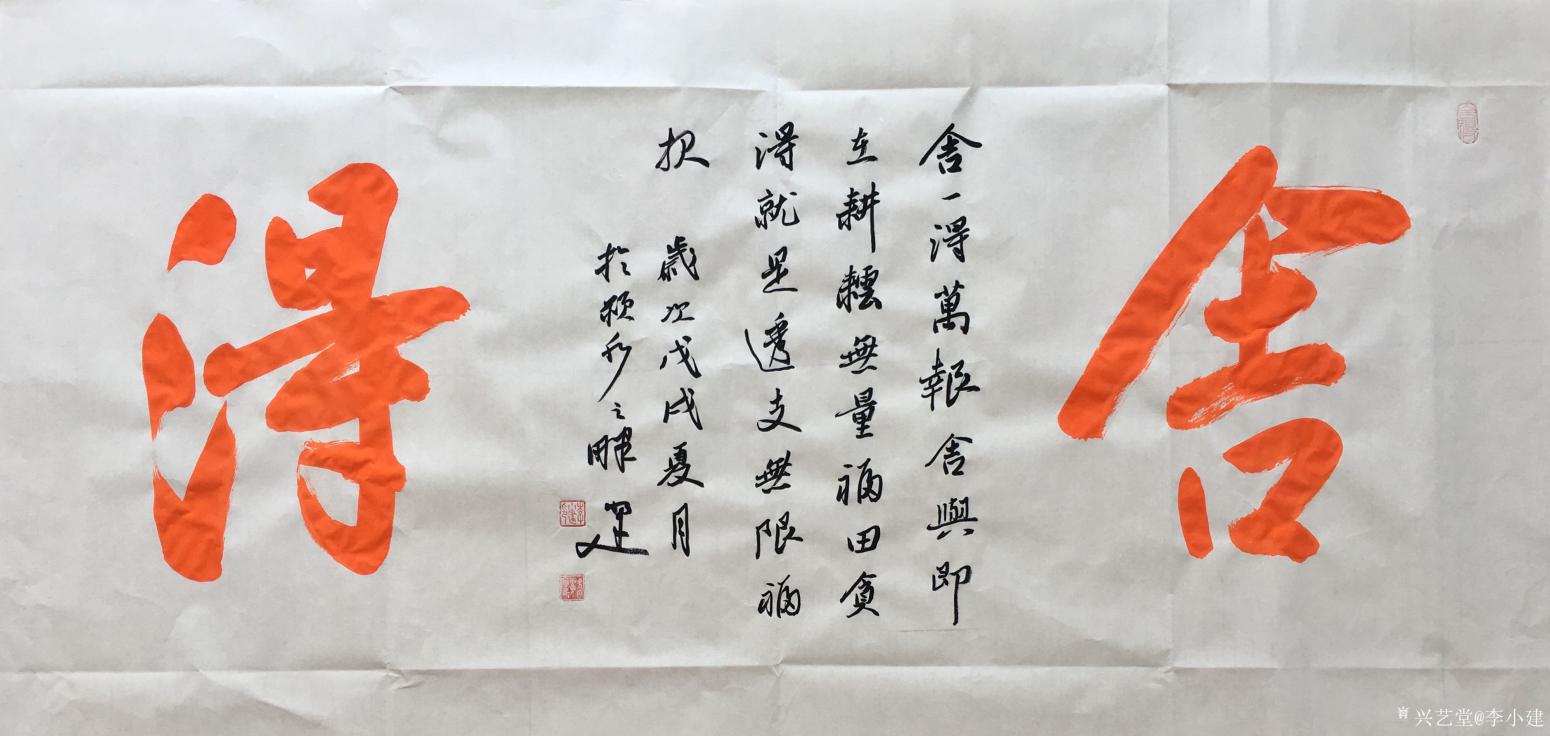 舍
舍一得萬報舍與即
在耕耘無量福田貪
得就是透支無限福
报 歲次戊戌夏月
於颍水之畔 建
得
兴艺堂@李小建